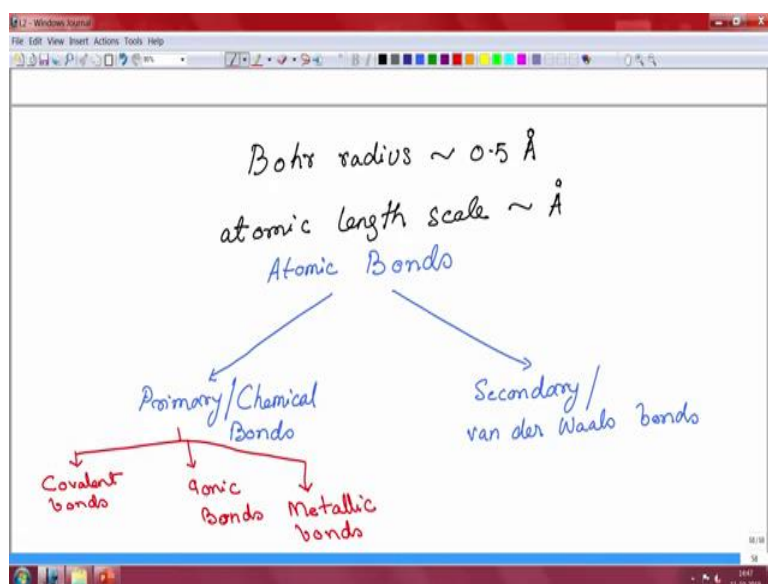 L2 - Windows Journal
File Edit View Insert Actions Tools Help
Bohr radius ~ 0.5 Å
atomic length scale ~ Å
Atomic Bonds
Primary/Chemical Bonds
Secondary/
van der Waals bonds
Covalent bonds
Ionic Bonds
Metallic bonds
58/58
58
1647